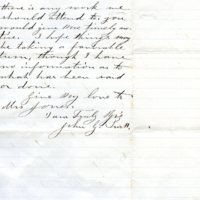 there is any work we
should attend to, you
would give me timely no-
tice. I hope things may
be taking a favorable
turn, though I have
no information as to
what has been said
or done.
Give my love to
Mrs Jones.
I am Truly Yrs
John